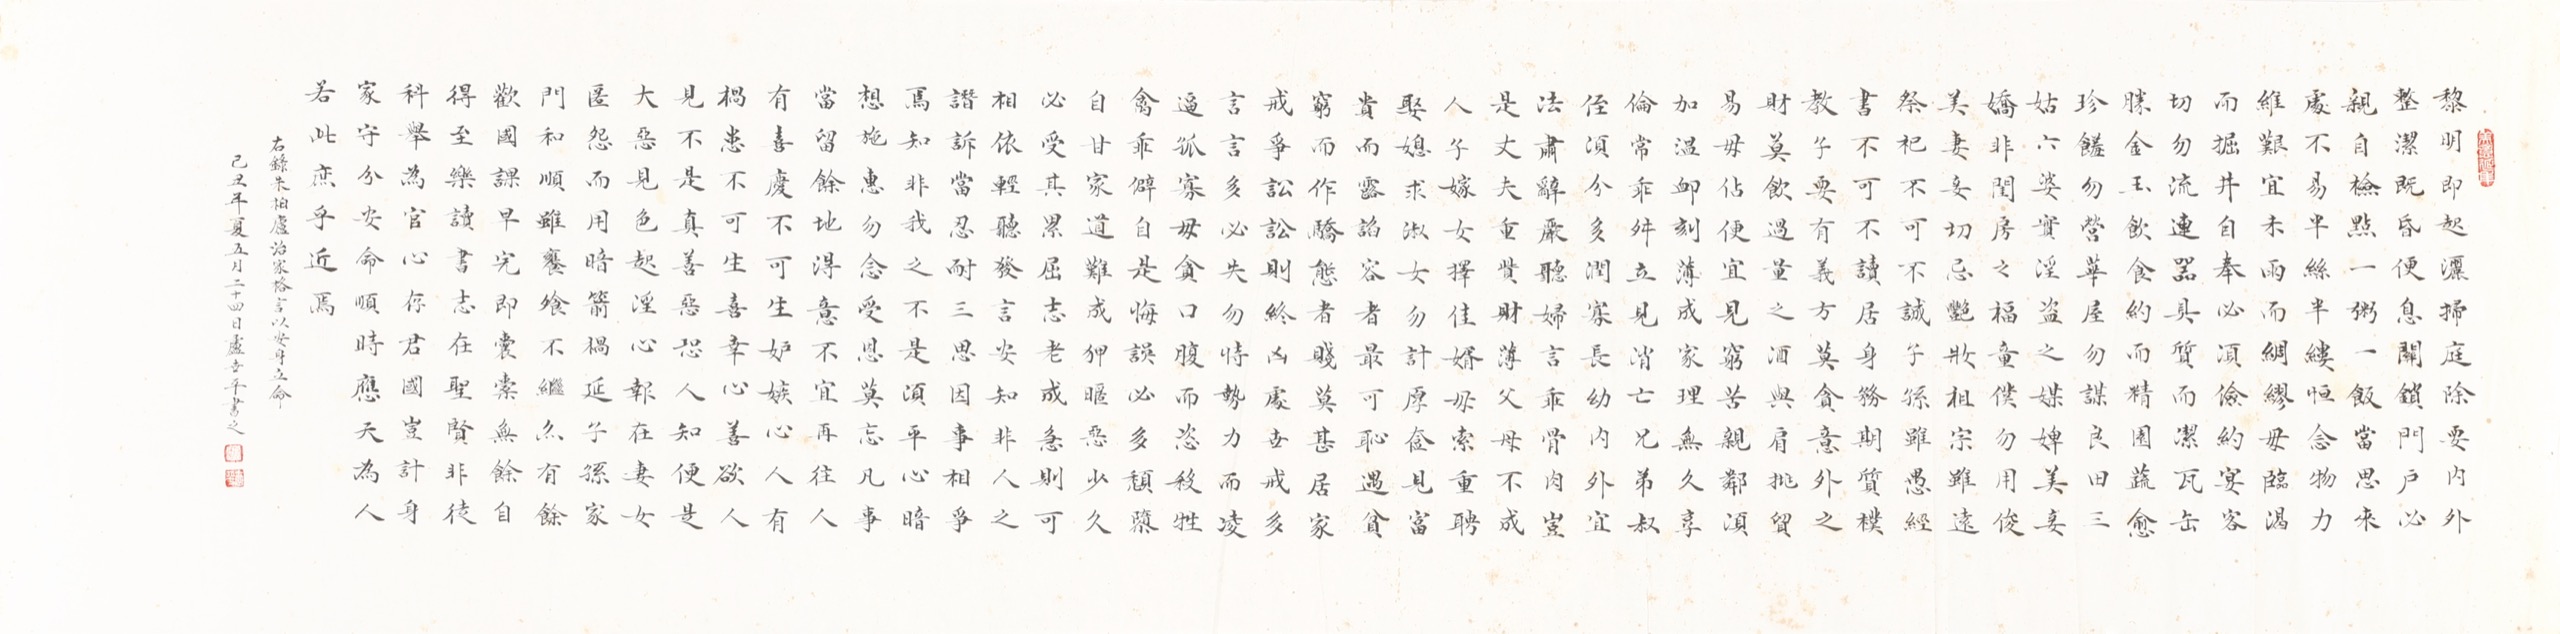 黎明即起灑掃庭除要内外
整潔既昏便息關鎖門戶必
親自檢點一粥一飯當思來
處不易半絲半縷恒念物力
維艱宜未雨而綢繆毋臨渴
而掘井自奉必須儉約宴客
切勿流連器具質而潔瓦缶
勝金玉飲食約而精園蔬愈
珍饈勿營華屋勿謀良田三
姑六婆實淫盜之媒婢美妾
嬌非閨房之福童僕勿用俊
美妻妾切忌艷妝祖宗雖遠
祭祀不可不誠子孫雖愚經
書不可不讀居身務期質樸
教子要有義方莫貪意外之
財莫飲過量之酒與肩挑貿
易毋佔便宜見窮苦親鄰須
加溫卹刻薄成家理無久享
倫常乖舛立見消亡兄弟叔
侄須分多潤寡長幼内外宜
法肅辭嚴聽婦言乖骨肉豈
是丈夫重貲財薄父母不成
人子嫁女擇佳婿毋索重聘
娶媳求淑女勿計厚奩見富
貴而露諂容者最可恥遇貧
窮而作驕態者賤莫甚居家
戒爭訟訟則終凶處世戒多
言言多必失勿恃勢力而凌
逼孤寡毋貪口腹而恣殺牲
禽乖僻自是悔誤必多頹隳
自甘家道難成狎暱惡少久
必受其累屈志老成急則可
相依輕聽發言安知非人之
譖訴當忍耐三思因事相爭
焉知非我之不是須平心暗
想施惠勿念受恩莫忘凡事
當留餘地得意不宜再往人
有喜慶不可生妒嫉心人有
禍患不可生喜幸心善欲人
見不是真善惡恐人知便是
大惡見色起淫心報在妻女
匿怨而用暗箭禍延子孫家
門和順雖饔飧不繼亦有餘
歡國課早完即囊橐無餘自
得至樂讀書志在聖賢非徒
科舉為官心存君國豈計身
家守分安命順時應天為人
若此庶乎近焉
右錄朱柏廬治家格言以安身立命
己丑年夏五月二十四日盧書之